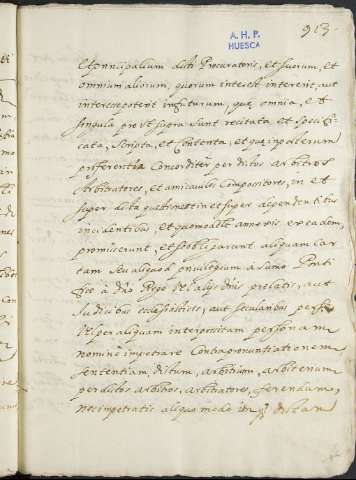 A. H. P.
HUESCA
913.
et principalium dicti Procuratoris, et suorum, et
omnium aliorum, quorum interest intererit, aut
interesse poterit in futurum, que omnia, et
singula prout supra sunt recitata et specifi-
cata, scripta, et contenta, et que in posterum
proferentia Concorditer per dictos arbitros
Arbitratores, et amicabiles Compositores, in et
super dicta questione et in et super dependentibus
incidentibus, et quomodolibet annexis ex eadem,
promisserunt, et se obligarunt aliquam Car
tam seu aliquod privilegium a sumo Ponti
fice a dño Rege vel aliis dñis prelatis, aut
Judicibus ecclesiasticis, aut secularibus per se
vel per aliquam interpositam personam
nomine impetrare Contra pronuntiationem
sententiam, dictum, arbitrium, arbitrium
per dictos arbitros, arbitratores, ferendum,
nec impetratis aliquo modo